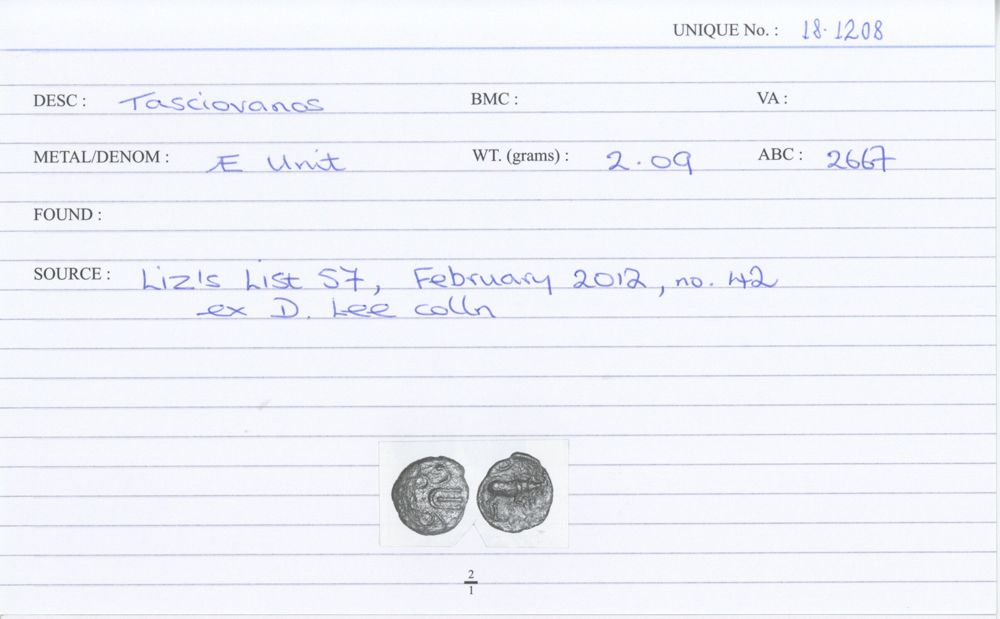 UNIQUE No. : 18.1208
DESC : Tasciovanos BMC : VA :
METAL/DENOM : Æ Unit WT. (grams) : 2.09 ABC : 2667
FOUND :
SOURCE : Liz's List 57, February 2012, no. 42
ex D. Lee colln
2
1